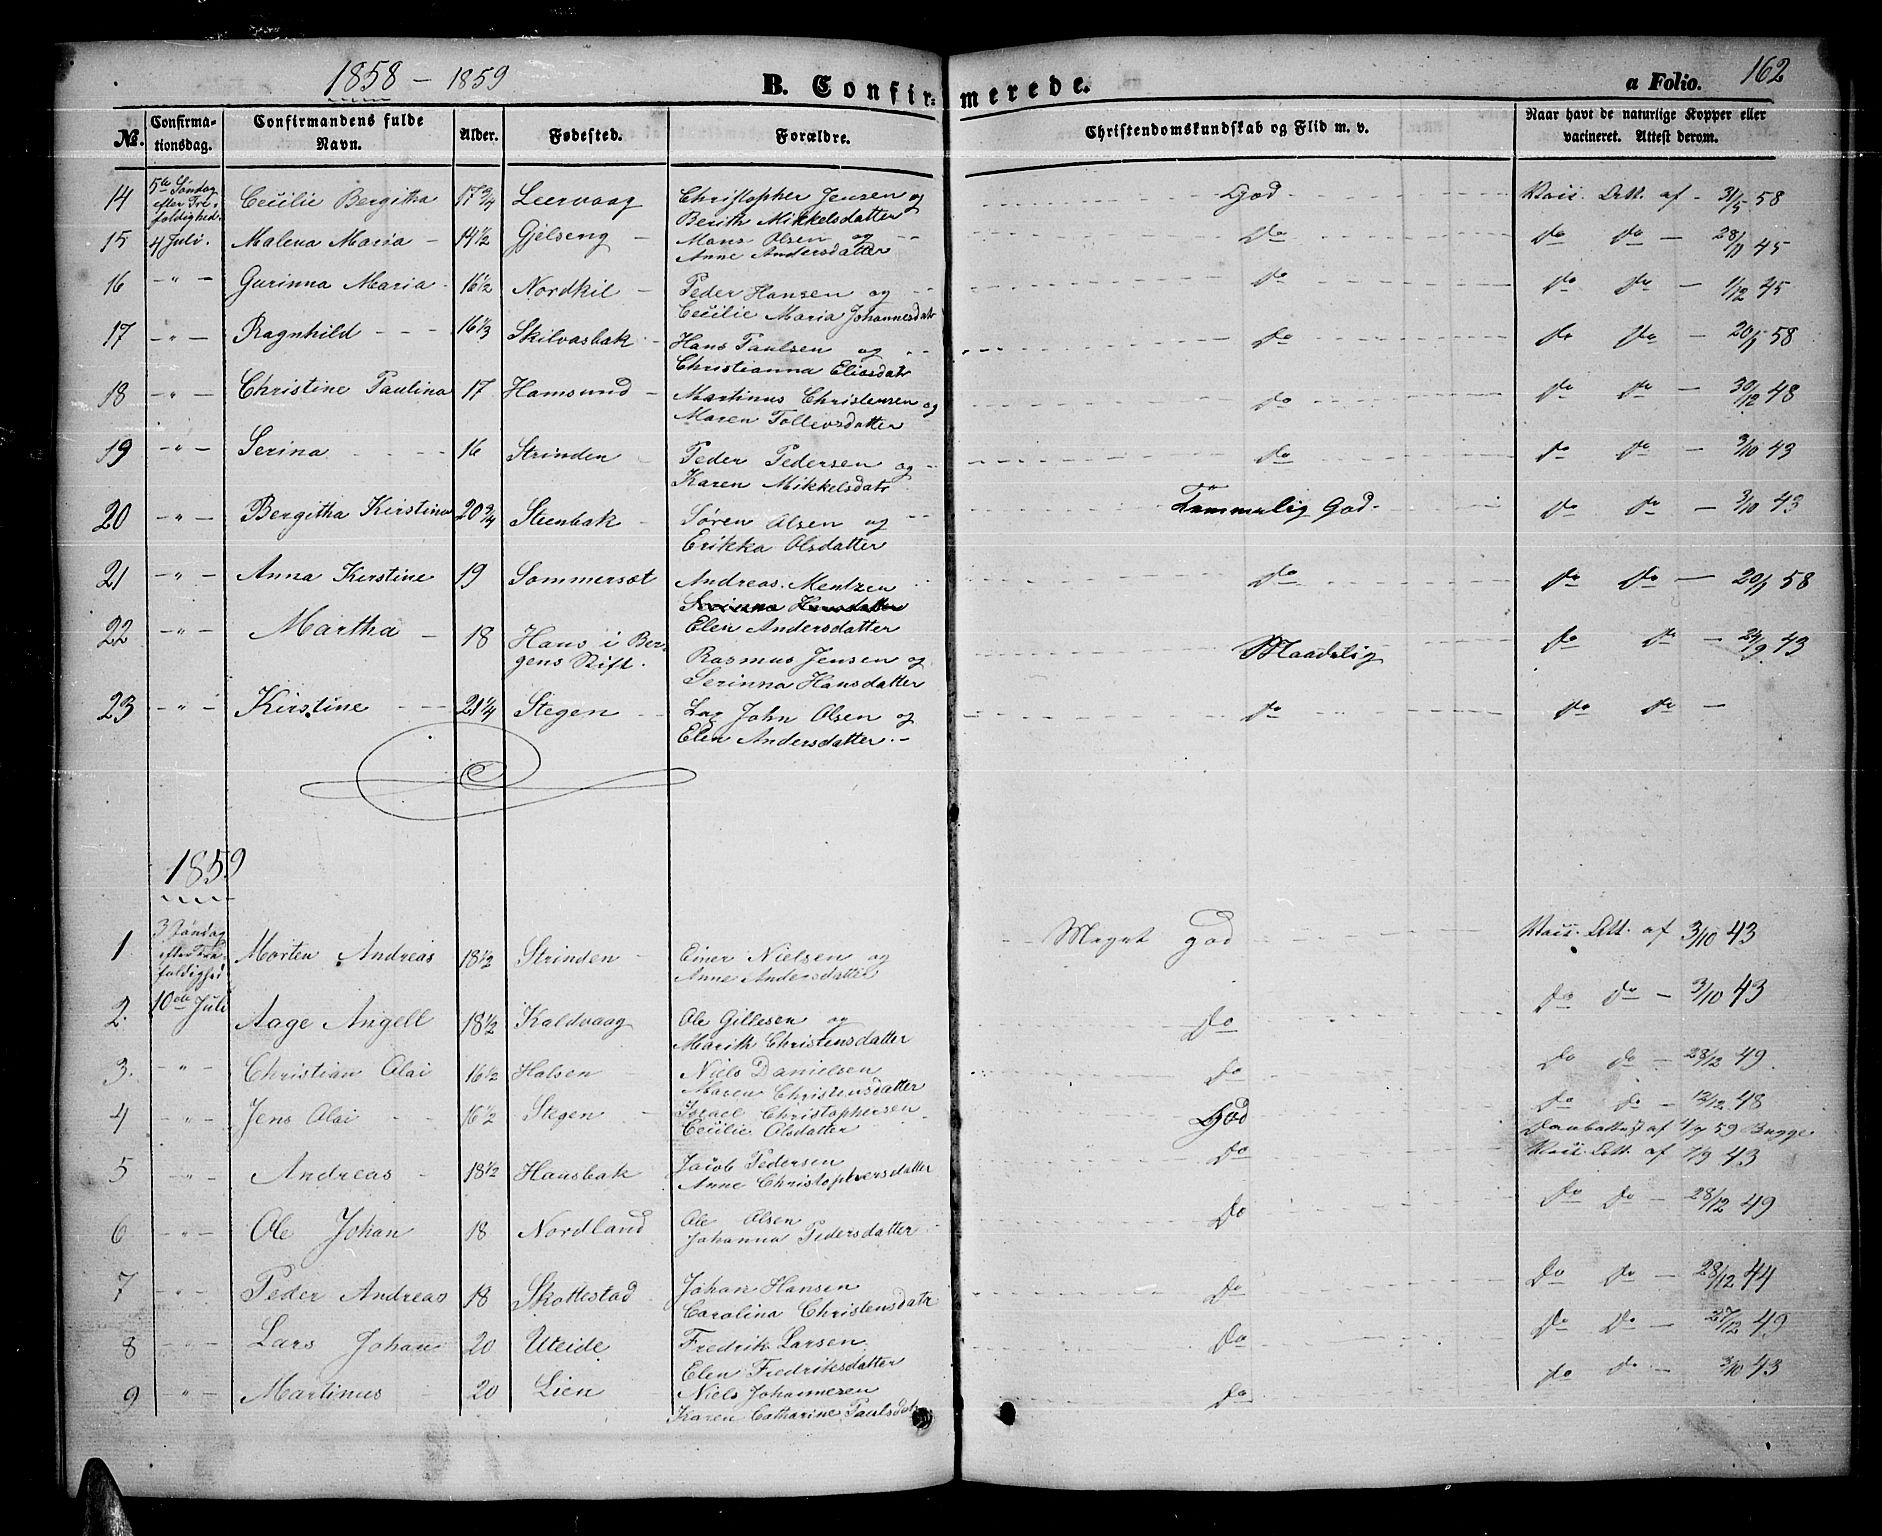 1858 - 1859
B. Confirmerede.
a Folio. 162
№. Confirmationsdag. Confirmandens fulde Navn. Alder. Fødested. Forældre. Christendomskundskab og Flid m. v. Naar havt de naturlige Kopper eller vacineret. Attest derom.
14 5te Søndag efter Trefoldighed. Cecilie Bergitha 17 3/4 Leervaag Christopher Jensen og God Vacc. Att. af - 31/5 58
Berith Mikkelsdatter
15 4 Juli. Malena Maria - 14 1/2 Gjelseng - Mons Olsen og Do Do Do - 45
Anne Andersdatter
16 - " - Gurinna Maria - 16 1/2 Nordkil - Peder Hansen og Do Do Do - 1/12 45
Cecilie Maria Johannesdatr
17 - " - Ragnhild - - - 16 1/3 Skilvasbak - Hans Paulsen og Do Do Do - 20/1 58
Christianna Eliasdatr
18 - " - Christine Paulina 17 Hamsund - Martinus Christensen og Do Do Do - 30/12 48
Maren Tollevsdatter
19 - " - Serina - - - - 16 Strinden Peder Pedersen og Do Do Do - 3/10 43
Karen Mikkelsdatr
20 - " - Bergitha Kirstina 20 3/4 Steenbak - Søren Olsen og Temmelig God - Do Do - 3/10 43
Erikka Olsdatter
21 - " - Anna Kirstine 19 Sommersæt Andreas Mentzen Do Do Do - 20/1 58
Serinna Hansdatter
Elen Andersdatter
22 - " - Martha - 18 Hans i Bergens Stift. Rasmus Jensen og Maadelig Do Do - 24/9 43
Serinna Hansdatter
23 - " - Kirstine - - - 21 1/4 Stegen - - Lap John Olsen og Do Do Do -
Elen Andersdatter. -
1859
1 3 Søndag efter Trefoldighed Morten Andreas 18 1/2 Strinden - Einer Nielsen og Meget god Vacc. Att. af 3/10 43
Anne Andersdatter
2. 10de Juli Aage Angell 18 1/2 Kaldvaag Ole Gillesen og Do Do Do - 3/10 43
Marith Christensdatter
3. - " - Christian Olai 16 1/2 Halsen - Niels Danielsen Do Do Do - 28/12 49.
Maren Christensdatter
4 - " - Jens Olai - - 16 1/2 Stegen - Israel Christophersen God Do Do - 12/12 48
Cecilie Olsdatter Daabattest af 59 Bugge
5 - " - Andreas - 18 1/2 Hansbak Jacob Pedersen Do Vacc. Att. af 7/9 43
Anne Christophersdatter
6 - " - Ole Johan 18 Nordland Ole Olsen Do Do Do - 28/12 49
Johanna Pedersdatter
7 - " - Peder Andreas 18 Skottestad Johan Hansen Do Do Do - 28/12 44
Carolina Christensdatr
8 - " - Lars Johan 20 Uteide Fredrik Larsen Do Do Do - 27/12 49
Elen Fredriksdatter
9 - " - Martinus - 20 Lien - Niels Johannesen Do Do Do - 3/10 43
Karen Catharine Paulsdatr